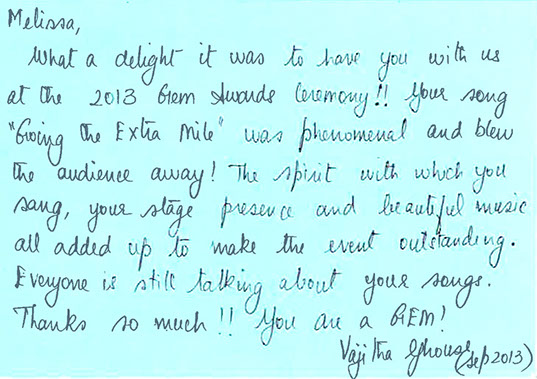 Melissa,
What a delight it was to have you with us
at the 2013 Gem Awards Ceremony!! Your song
"Going the Extra Mile" was phenomenal and blew
the audience away! The spirit with which you
sang, your stage presence and beautiful music
all added up to make the event outstanding.
Everyone is still talking about your songs.
Thanks so much!! You are a GEM!
Vajitha Ghouse (Sep 2013)